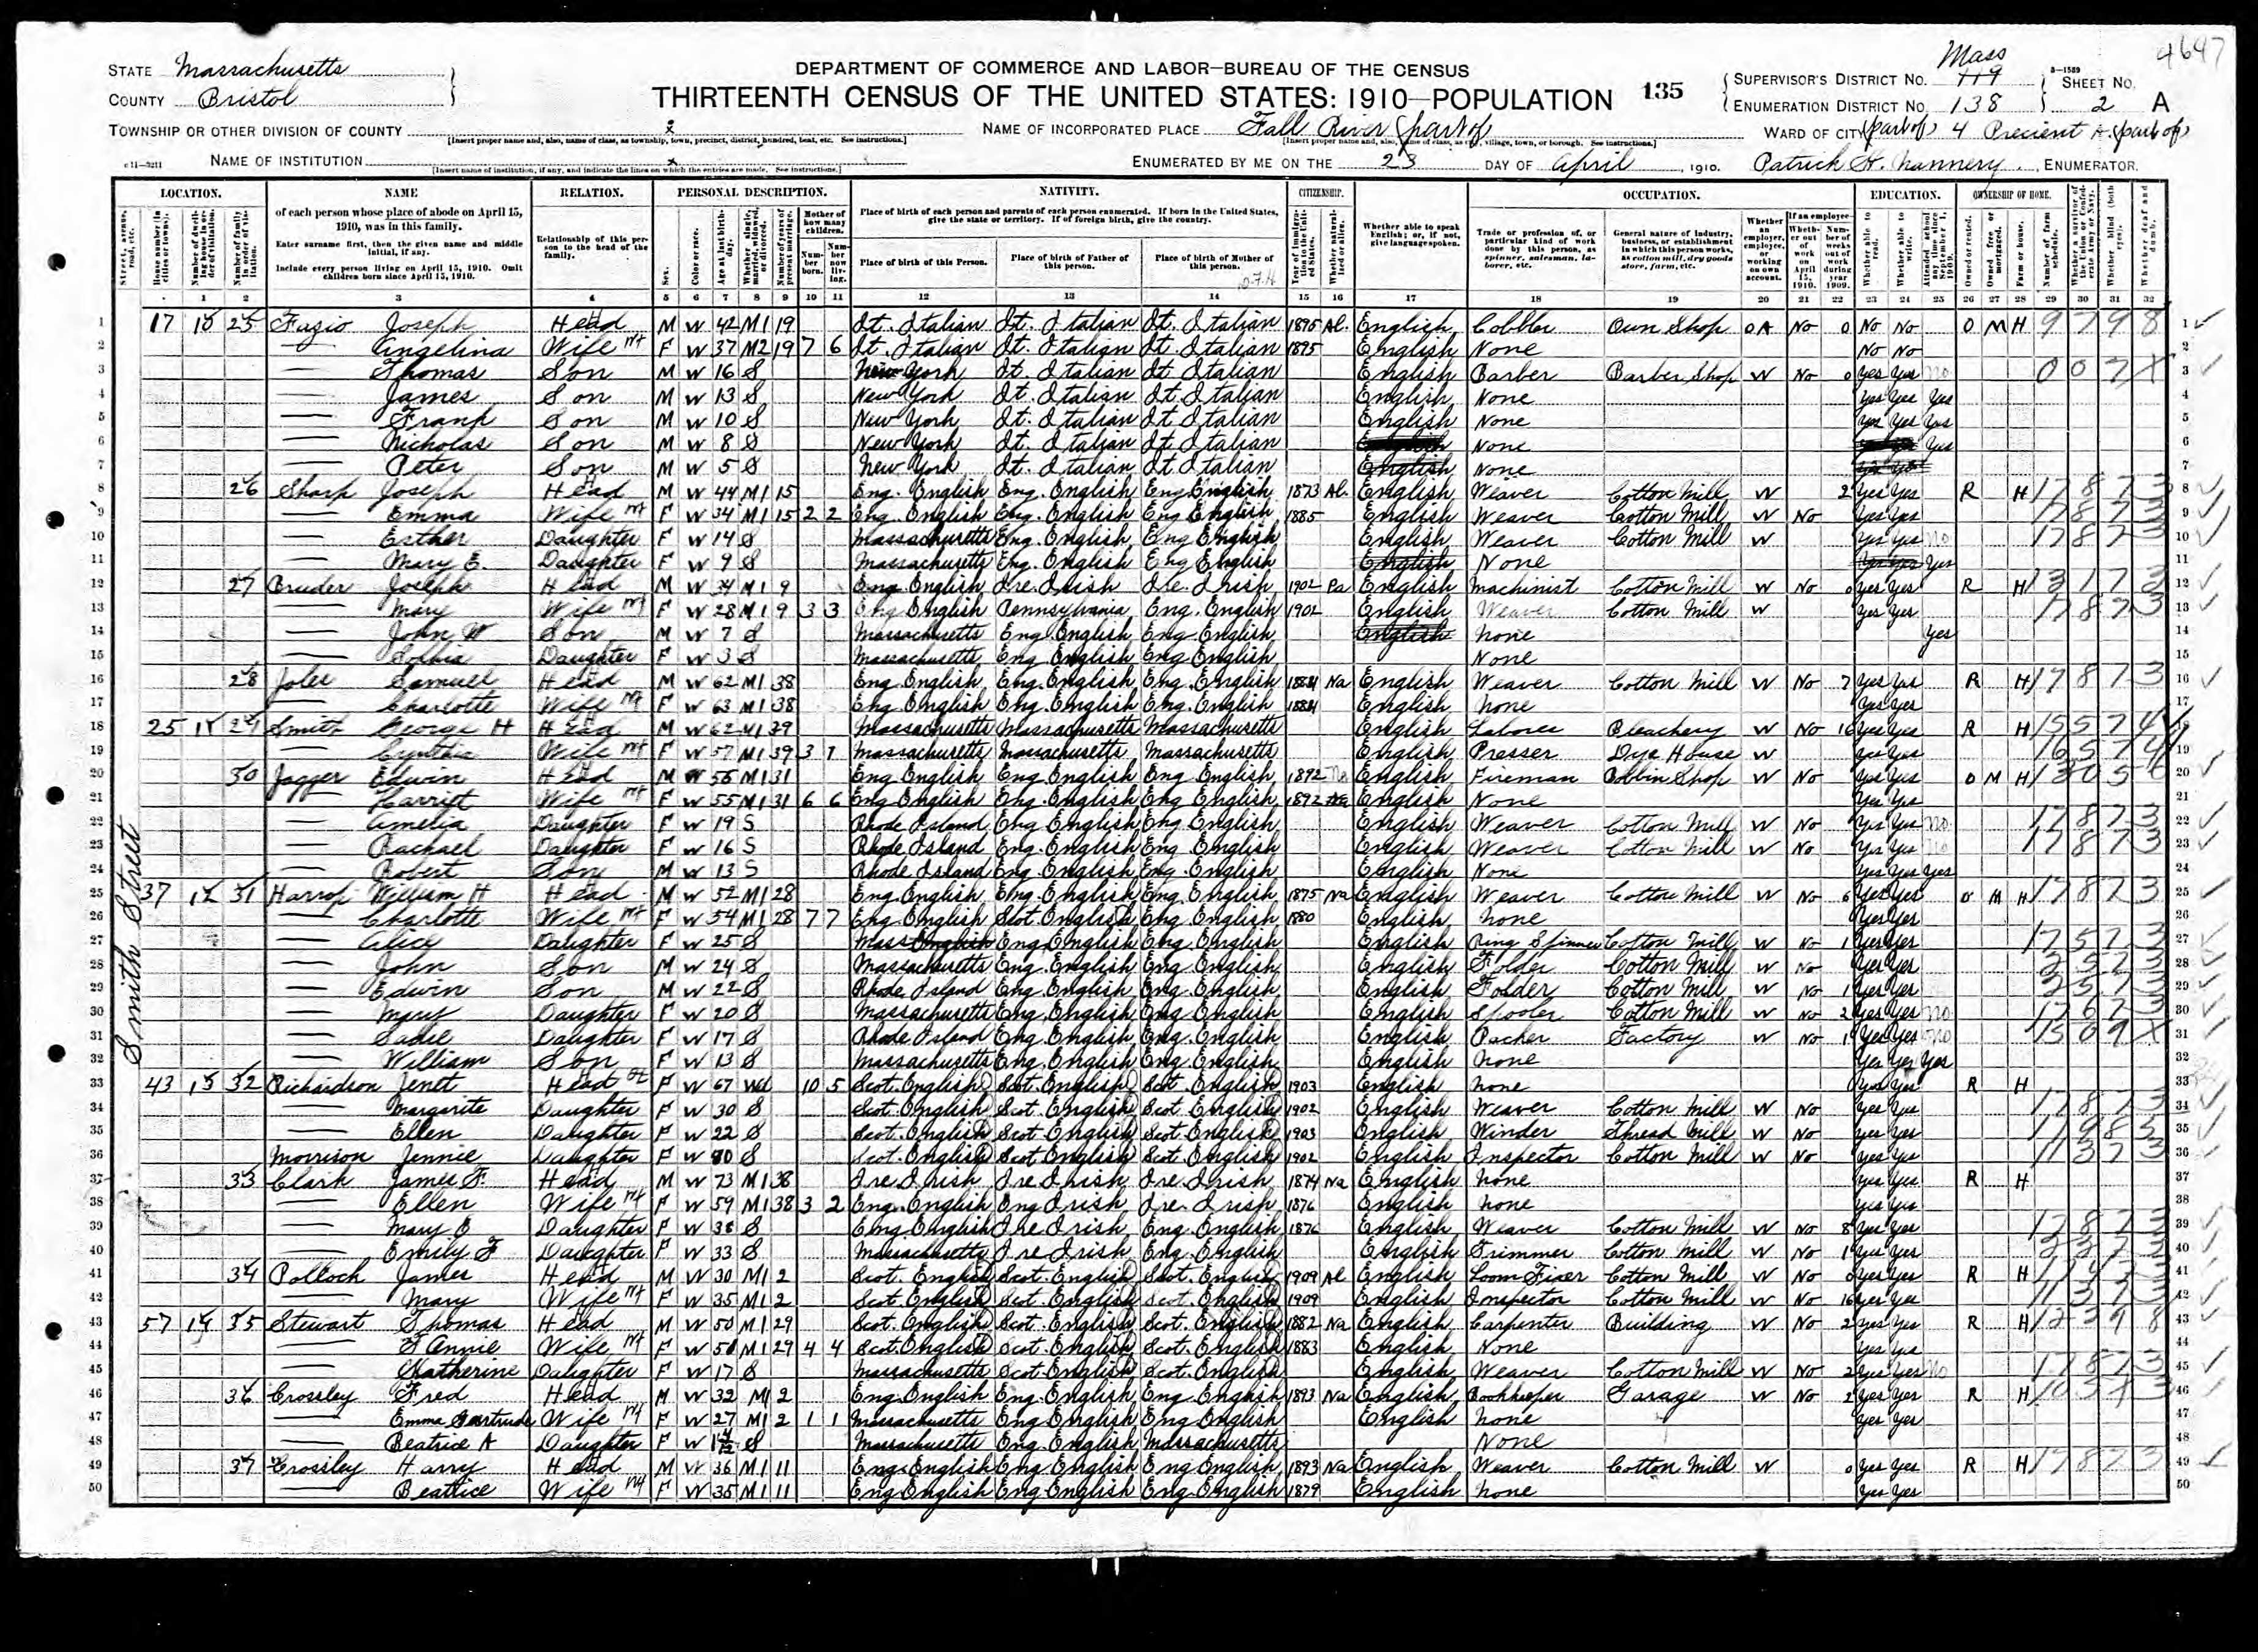 4647
STATE Massachusetts
COUNTY Bristol
DEPARTMENT OF COMMERCE AND LABOR—BUREAU OF THE CENSUS
THIRTEENTH CENSUS OF THE UNITED STATES: 1910—POPULATION 135
Mass
SUPERVISOR'S DISTRICT NO. 119
ENUMERATION DISTRICT NO. 138
8-1589 SHEET NO. 2 A
TOWNSHIP OR OTHER DIVISION OF COUNTY x
[Insert proper name and, also, name of class, as township, town, precinct, district, hundred, beat, etc. See instructions.]
NAME OF INCORPORATED PLACE Fall River (part of
[Insert proper name and, also, name of class, as city, village, town, or borough. See instructions.]
WARD OF CITY (part of) 4 Precinct A. (part of)
NAME OF INSTITUTION x
[Insert name of institution, if any, and indicate the lines on which the entries are made. See instructions.]
ENUMERATED BY ME ON THE 23 DAY OF April, 1910. Patrick H. Nannery, ENUMERATOR.
LOCATION. NAME RELATION. PERSONAL DESCRIPTION. NATIVITY. CITIZENSHIP. OCCUPATION. EDUCATION. OWNERSHIP OF HOME.
of each person whose place of abode on April 15, 1910, was in this family.
Enter surname first, then the given name and middle initial, if any.
Include every person living on April 15, 1910. Omit children born since April 15, 1910.
Relationship of this person to the head of the family.
Place of birth of each person and parents of each person enumerated. If born in the United States, give the state or territory. If of foreign birth, give the country.
Place of birth of this Person. Place of birth of Father of this person. Place of birth of Mother of this person.
Whether able to speak English; or, if not, give language spoken.
Trade or profession of, or particular kind of work done by this person, as spinner, salesman, laborer, etc.
General nature of industry, business, or establishment in which this person works, as cotton mill, dry goods store, farm, etc.
1 2 3 4 5 6 7 8 9 10 11 12 13 14 15 16 17 18 19 20 21 22 23 24 25 26 27 28 29 30 31 32
Smith Street
1 17 25 Fuzio Joseph Head M W 42 M1 19 It. Italian It. Italian It. Italian 1895 Al. English Cobbler Own Shop OA No 0 No No O M H 9 7 9 8
2 Angelina Wife F W 37 M2 19 7 6 It. Italian It. Italian It. Italian 1895 English None No No
3 Thomas Son M W 16 S New York It. Italian It. Italian English Barber Barber Shop W No 0 Yes Yes No 0 0 7 X
4 James Son M W 13 S New York It. Italian It. Italian English None Yes Yes Yes
5 Frank Son M W 10 S New York It. Italian It. Italian English None Yes Yes Yes
6 Nicholas Son M W 8 S New York It. Italian It. Italian English None Yes
7 Peter Son M W 5 S New York It. Italian It. Italian English None
8 26 Sharp Joseph Head M W 44 M1 15 Eng. English Eng. English Eng English 1873 Al. English Weaver Cotton Mill W 2 Yes Yes R H 1 7 8 7 3
9 Emma Wife F W 34 M1 15 2 2 Eng. English Eng. English Eng English 1885 English Weaver Cotton Mill W No Yes Yes 1 7 8 7 3
10 Esther Daughter F W 14 S Massachusetts Eng. English Eng English English Weaver Cotton Mill W Yes Yes No 1 7 8 7 3
11 Mary E. Daughter F W 9 S Massachusetts Eng. English Eng English English None Yes Yes Yes
12 27 Bruder Joseph Head M W 34 M1 9 Eng. English Ire. Irish Ire. Irish 1902 Pa English Machinist Cotton Mill W No 0 Yes Yes R H 1 3 1 7 3
13 Mary Wife F W 28 M1 9 3 3 Eng English Pennsylvania Eng. English 1902 English Weaver Cotton Mill W Yes Yes 1 7 8 7 3
14 John W Son M W 7 S Massachusetts Eng. English Eng English English None Yes
15 Sophia Daughter F W 3 S Massachusetts Eng. English Eng English None
16 28 Jolee Samuel Head M W 62 M1 38 Eng English Eng. English Eng. English Na English Weaver Cotton Mill W No 7 Yes Yes R H 1 7 8 7 3
17 Charlotte Wife F W 63 M1 38 Eng English Eng. English Eng. English English None Yes Yes
18 25 29 Smith George H Head M W 62 M1 39 Massachusetts Massachusetts Massachusetts English Laborer Bleachery W No 16 Yes Yes R H 1 5 5 7 4
19 Cynthia Wife F W 57 M1 39 3 1 Massachusetts Massachusetts Massachusetts English Presser Dye House W Yes Yes 1 6 5 7 4
20 30 Jagger Edwin Head M W 56 M1 31 Eng English Eng English Eng English 1892 Na English Fireman Bobbin Shop W No Yes Yes O M H
21 Harriet Wife F W 55 M1 31 6 6 Eng English Eng. English Eng English 1892 English None Yes Yes
22 Amelia Daughter F W 19 S Rhode Island Eng English Eng English English Weaver Cotton Mill W No Yes Yes No 1 7 8 7 3
23 Rachael Daughter F W 16 S Rhode Island Eng. English Eng. English English Weaver Cotton Mill W No Yes Yes No 1 7 8 7 3
24 Robert Son M W 13 S Rhode Island Eng. English Eng. English English None Yes Yes Yes
25 37 31 Harrop William H Head M W 52 M1 28 Eng. English Eng. English Eng. English 1875 Na English Weaver Cotton Mill W No 6 Yes Yes O M H 1 7 8 7 3
26 Charlotte Wife F W 54 M1 28 7 7 Eng. English Scot. English Eng. English 1880 English None Yes Yes
27 Alice Daughter F W 25 S Mass English Eng English Eng. English English Ring Spinner Cotton Mill W No 1 Yes Yes 1 7 5 7 3
28 John Son M W 24 S Massachusetts Eng. English Eng. English English Folder Cotton Mill W No Yes Yes
29 Edwin Son M W 22 S Rhode Island Eng English Eng. English English Folder Cotton Mill W No 1 Yes Yes
30 Mary Daughter F W 20 S Massachusetts Eng. English Eng. English English Spooler Cotton Mill W No 2 Yes Yes No 1 7 6 7 3
31 Sadie Daughter F W 17 S Rhode Island Eng. English Eng. English English Packer Factory W No 1 Yes Yes No 1 5 0 9 X
32 William Son F W 13 S Massachusetts Eng. English Eng. English English None Yes Yes Yes
33 43 32 Richardson Jenet Head F W 67 Wd 10 5 Scot. English Scot. English Scot. English 1903 English None Yes Yes R H
34 Margarite Daughter F W 30 S Scot. English Scot. English Scot English 1902 English Weaver Cotton Mill W No Yes Yes 1 7 8 7 3
35 Ellen Daughter F W 22 S Scot. English Scot English Scot English 1903 English Winder Thread Mill W No Yes Yes 1 7 9 8 3
36 Morrison Jennie Daughter F W S Scot. English Scot English Scot. English 1902 English Inspector Cotton Mill W No Yes Yes 1 1 3 7 3
37 33 Clark James F. Head M W 73 M1 38 Ire Irish Ire Irish Ire. Irish 1874 Na English None Yes Yes R H
38 Ellen Wife F W 59 M1 38 3 2 Eng. English Eng Irish Ire. Irish 1876 English None Yes Yes
39 Mary E Daughter F W S Eng. English Ire Irish Eng. English 1876 English Weaver Cotton Mill W No 8 Yes Yes 1 7 8 7 3
40 Emily F Daughter F W 33 S Massachusetts Ire Irish Eng. English English Trimmer Cotton Mill W No 1 Yes Yes
41 34 Pollock James Head M W 30 M1 2 Scot. English Scot. English Scot. English 1909 Al English Loom Fixer Cotton Mill W No 0 Yes Yes R H
42 Mary Wife F W 35 M1 2 Scot English Scot. English Scot. English 1909 English Inspector Cotton Mill W No 16 Yes Yes 1 1 3 7 3
43 57 35 Stewart Thomas Head M W 50 M1 29 Scot. English Scot. English Scot. English 1882 Na English Carpenter Building W No 2 Yes Yes R H 1 2 3 9 8
44 Fannie Wife F W M1 29 4 4 Scot. English Scot. English Scot. English 1883 English None Yes Yes
45 Katherine Daughter F W 17 S Massachusetts Scot English Scot. English English Weaver Cotton Mill W No 2 Yes Yes No 1 7 8 7 3
46 36 Crossley Fred Head M W 32 M1 2 Eng. English Eng. English Eng. English 1893 Na English Bookkeeper Garage W No 2 Yes Yes R H
47 Emma Gertrude Wife F W 27 M1 2 1 1 Massachusetts Eng English Eng English English None Yes Yes
48 Beatrice A Daughter F W S Massachusetts Eng. English Massachusetts None
49 37 Crossley Harry Head M W 36 M1 11 Eng. English Eng English Eng English 1893 Na English Weaver Cotton Mill W 0 Yes Yes R H 1 7 8 7 3
50 Beatrice Wife F W 35 M1 11 Eng English Eng English Eng. English 1879 English None Yes Yes